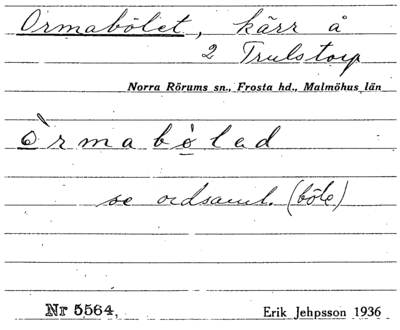 Ormabölet, kärr å
2 Trulstorp
Norra Rörums sn., Frosta hd., Malmöhus län
òrmabòlad
se ordsaml. (böle)
Nr 5564. Erik Jehpsson 1936